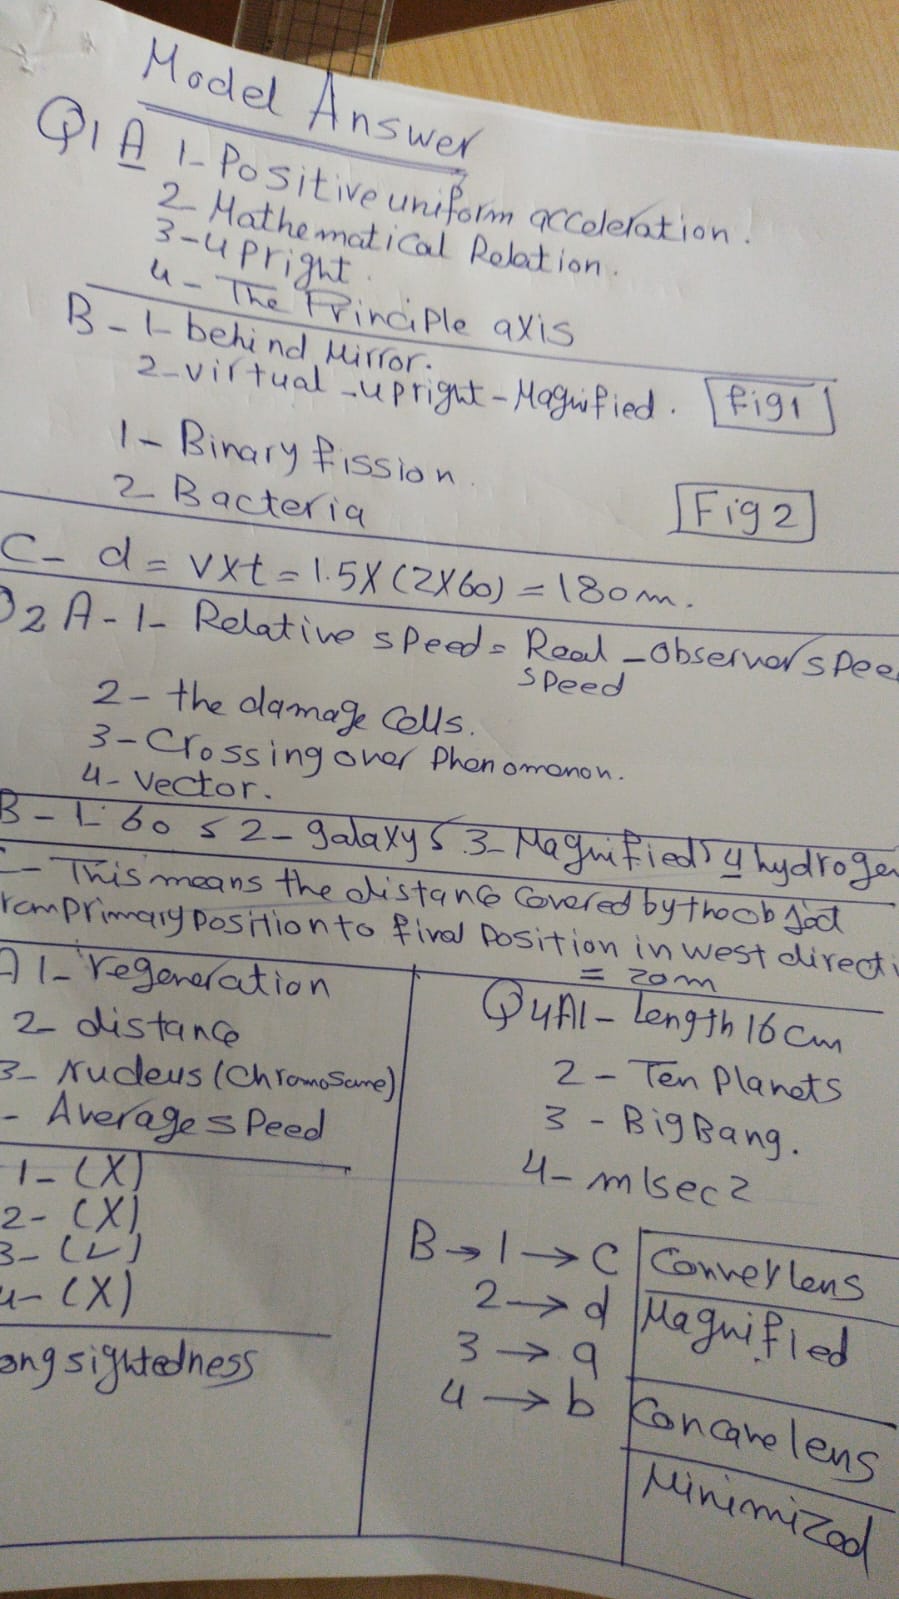 Model Answer
Q1 A 1- Positive uniform acceleration.
2- Mathematical Relation.
3- upright.
4- The Principle axis
B - 1- behind Mirror.
2- virtual - upright - Magnified. Fig1
1- Binary fission.
2- Bacteria
Fig2
C- d = v x t = 1.5 X (2X60) = 180m.
2 A - 1- Relative speed = Real speed - observer
2 - the damage Cells.
3 - Crossing over Phenomenon.
4 - Vector.
B - 1- 60 2 - galaxy 3 - Magnified 4
- This means the distance covered by the object
Primary position to final position in west
= 20m
A 1- regeneration
2- distance
3- Nucleus (Chromosome)
- Average speed
1- (X)
2- (X)
3- (✓)
4- (X)
Q4 A1 - Length 16 cm
2 - Ten Planets
3 - Big Bang.
4 - m/sec2
B → 1 → C Convex lens
2 → d Magnified
3 → a
4 → b Concave lens
Minimized